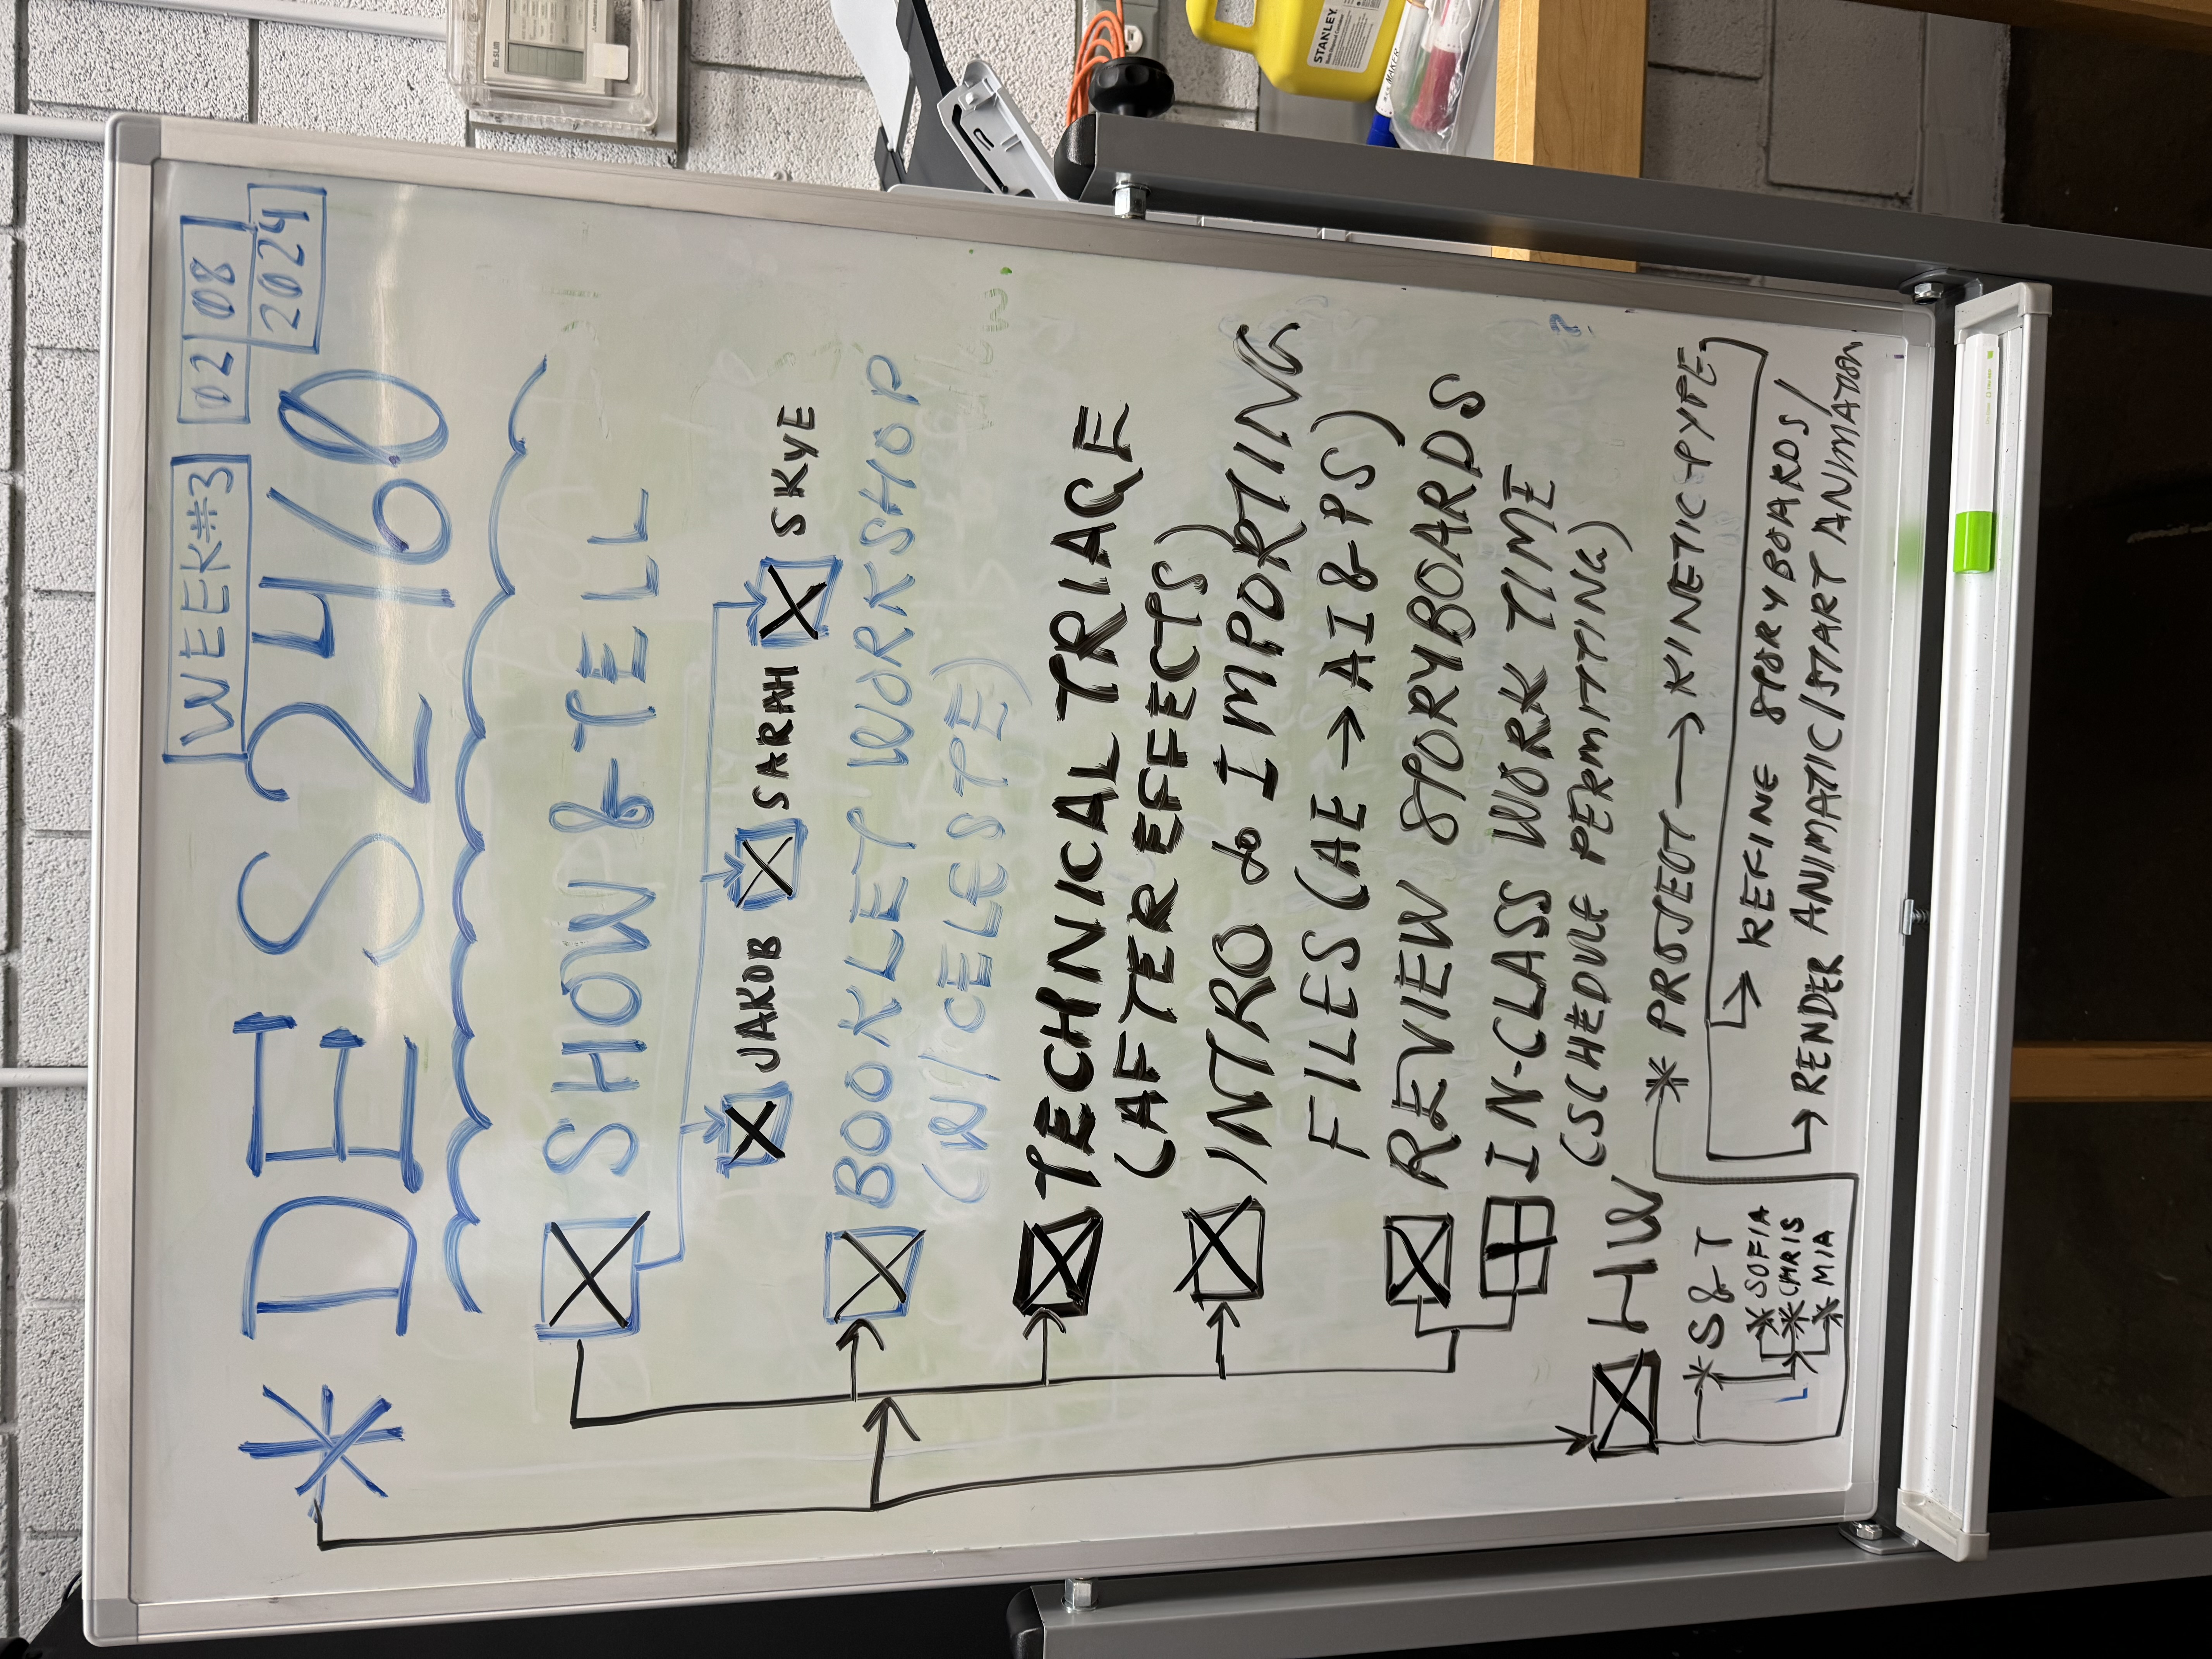 WEEK#3 02 08
2024
* DES 2460
SHOW & TELL
JAKOB SARAH SKYE
BOOKLET WORKSHOP
(W/CELESTE)
TECHNICAL TRIAGE
(AFTER EFFECTS)
INTRO to IMPORTING
FILES (AE → AI & PS)
REVIEW STORYBOARDS
IN-CLASS WORK TIME
(SCHEDULE PERMITTING)
HW
* PROJECT → KINETIC TYPE
→ REFINE STORYBOARDS/
→ RENDER ANIMATIC/START ANIMATION
* S&T
* SOFIA
* CHRIS
* MIA
STANLEY